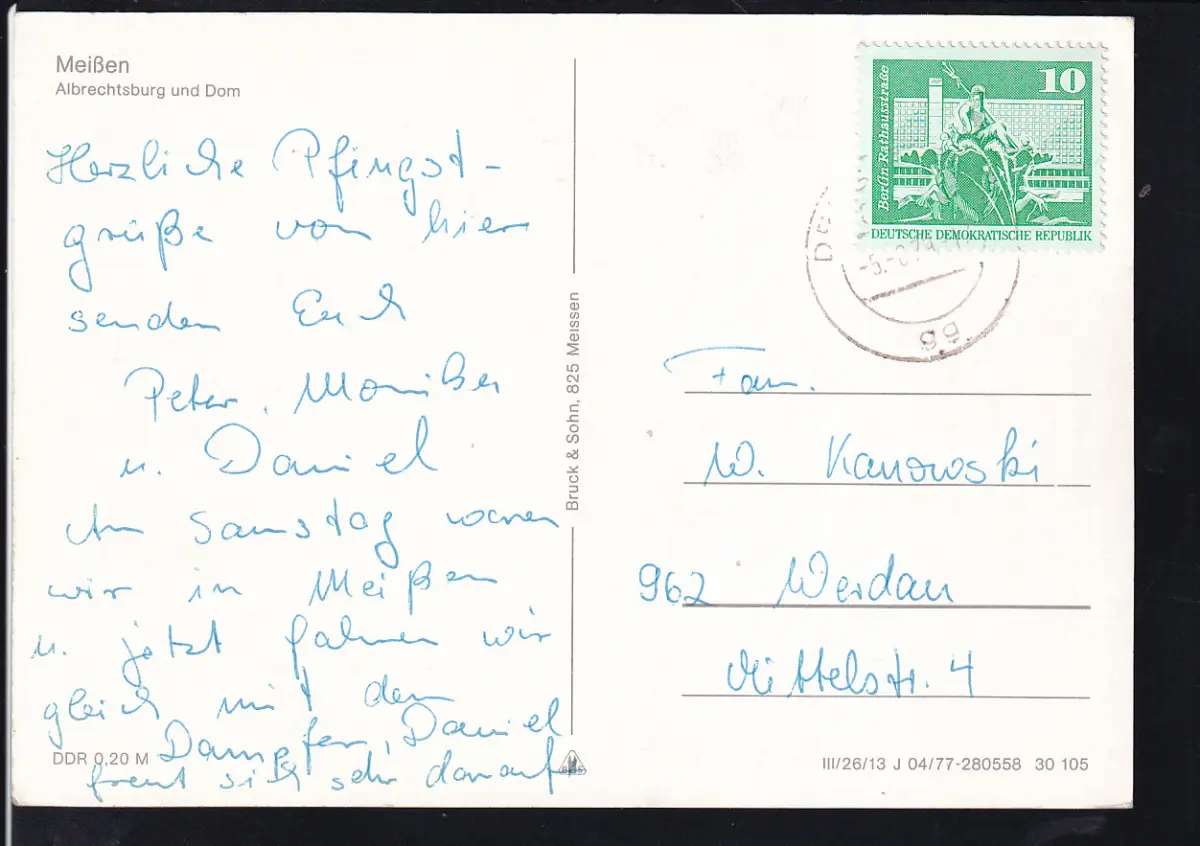 Meißen
Albrechtsburg und Dom
Herzliche Pfingst-
grüße von hier
senden Euch
Peter, Monika
u. Daniel
Am Samstag waren
wir in Meißen
u. jetzt fahren wir
gleich mit dem
Dampfer, Daniel
freut sich sehr darauf
DDR 0,20 M
Bruck & Sohn, 825 Meissen
10
Berlin-Rathausstraße
DEUTSCHE DEMOKRATISCHE REPUBLIK
Fam.
W. Kanowski
962 Werdau
Mittelstr. 4
III/26/13 J 04/77-280558 30 105